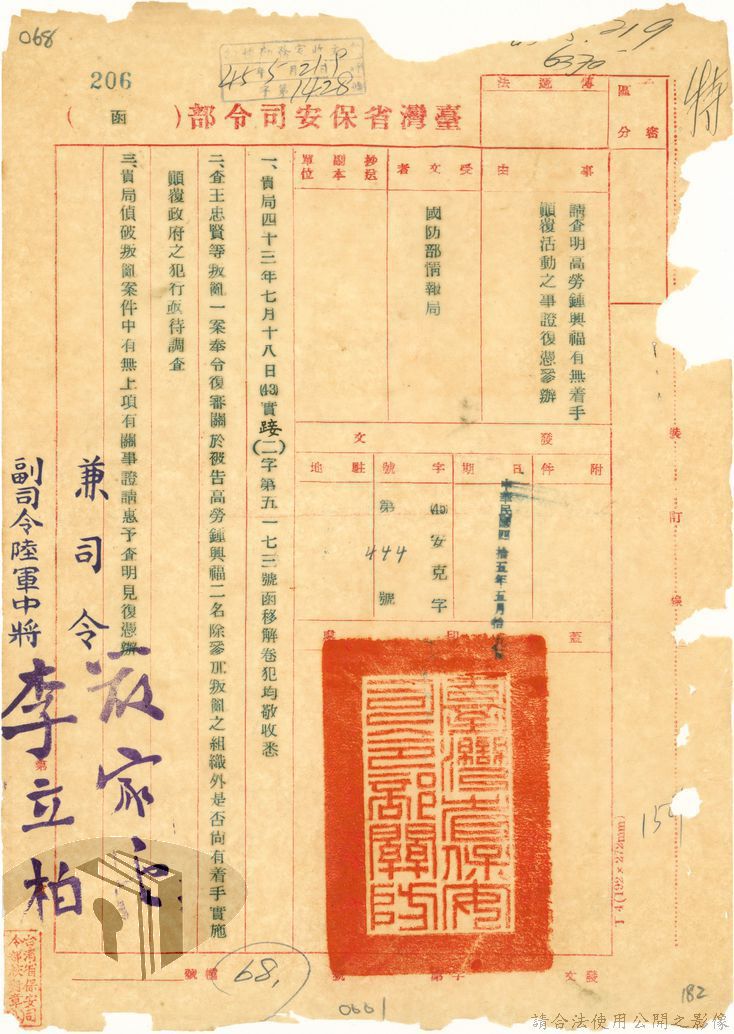 068
206
45年5月21日
1428
219
6370
特
臺灣省保安司令部(函)
區分
密
傳遞法
事由
請查明高勞鍾興福有無着手
顛覆活動之事證復憑參辦
受文者
國防部情報局
抄送副本單位
發文
附件
日期
中華民國四拾五年五月拾
字號
(45)安克字
第444號
駐地
蓋印
臺灣省保安司令部關防
一、貴局四十三年七月十八日(43)實踐(二)字第五一七三號函移解卷犯均敬收悉
二、查王忠賢等叛亂一案奉令復審關於被告高勞鍾興福二名除參加叛亂之組織外是否尚有着手實施
顛覆政府之犯行亟待調查
三、貴局偵破叛亂案件中有無上項有關事證請惠予查明見復憑辦
兼司令
副司令陸軍中將李立柏
裝訂線
發文字第號
檔號
68,
0061
182
請合法使用公開之影像